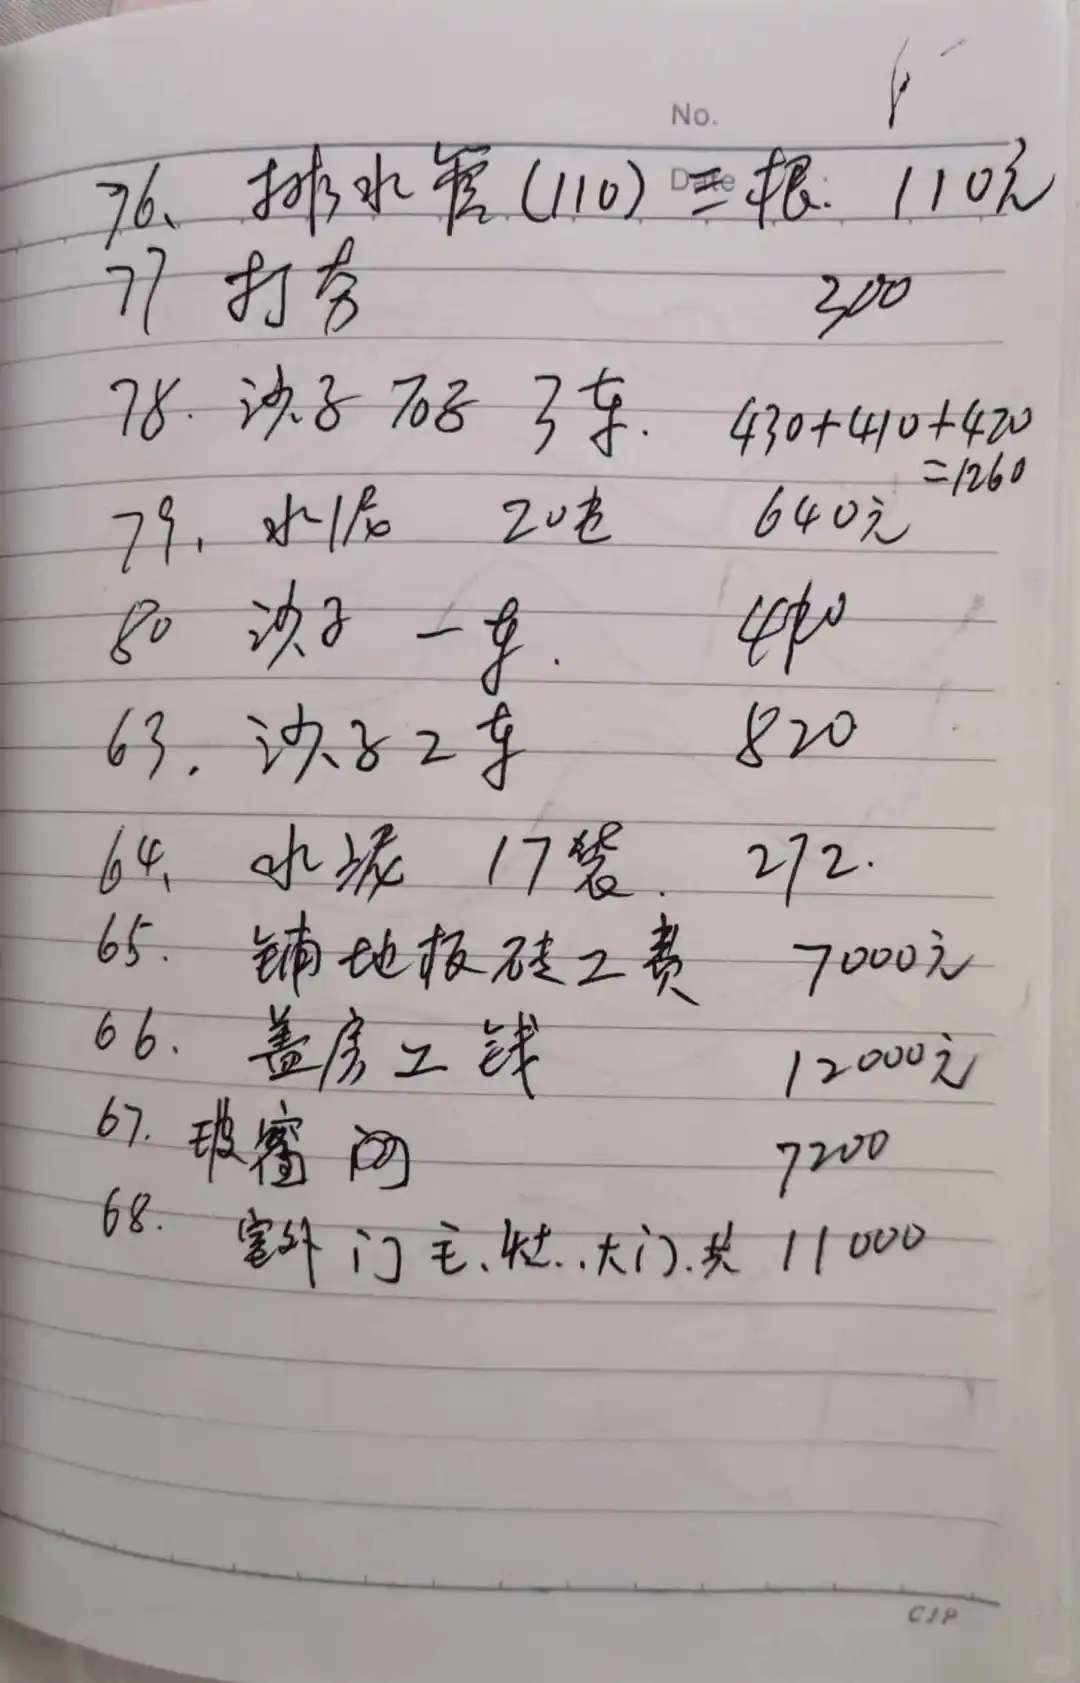 No.
Date
76、排水管(110)三根. 110元
77 打夯 300
78. 沙子石子 3车. 430+410+420
=1260
79. 水泥 20包 640元
80 沙子 一车.
63. 沙子2车 820
64、水泥 17袋. 272.
65. 铺地板砖工费 7000元
66. 盖房工钱 12000元
67. 玻窗 7200
68. 室外门主、灶..大门.共 11000
CJP